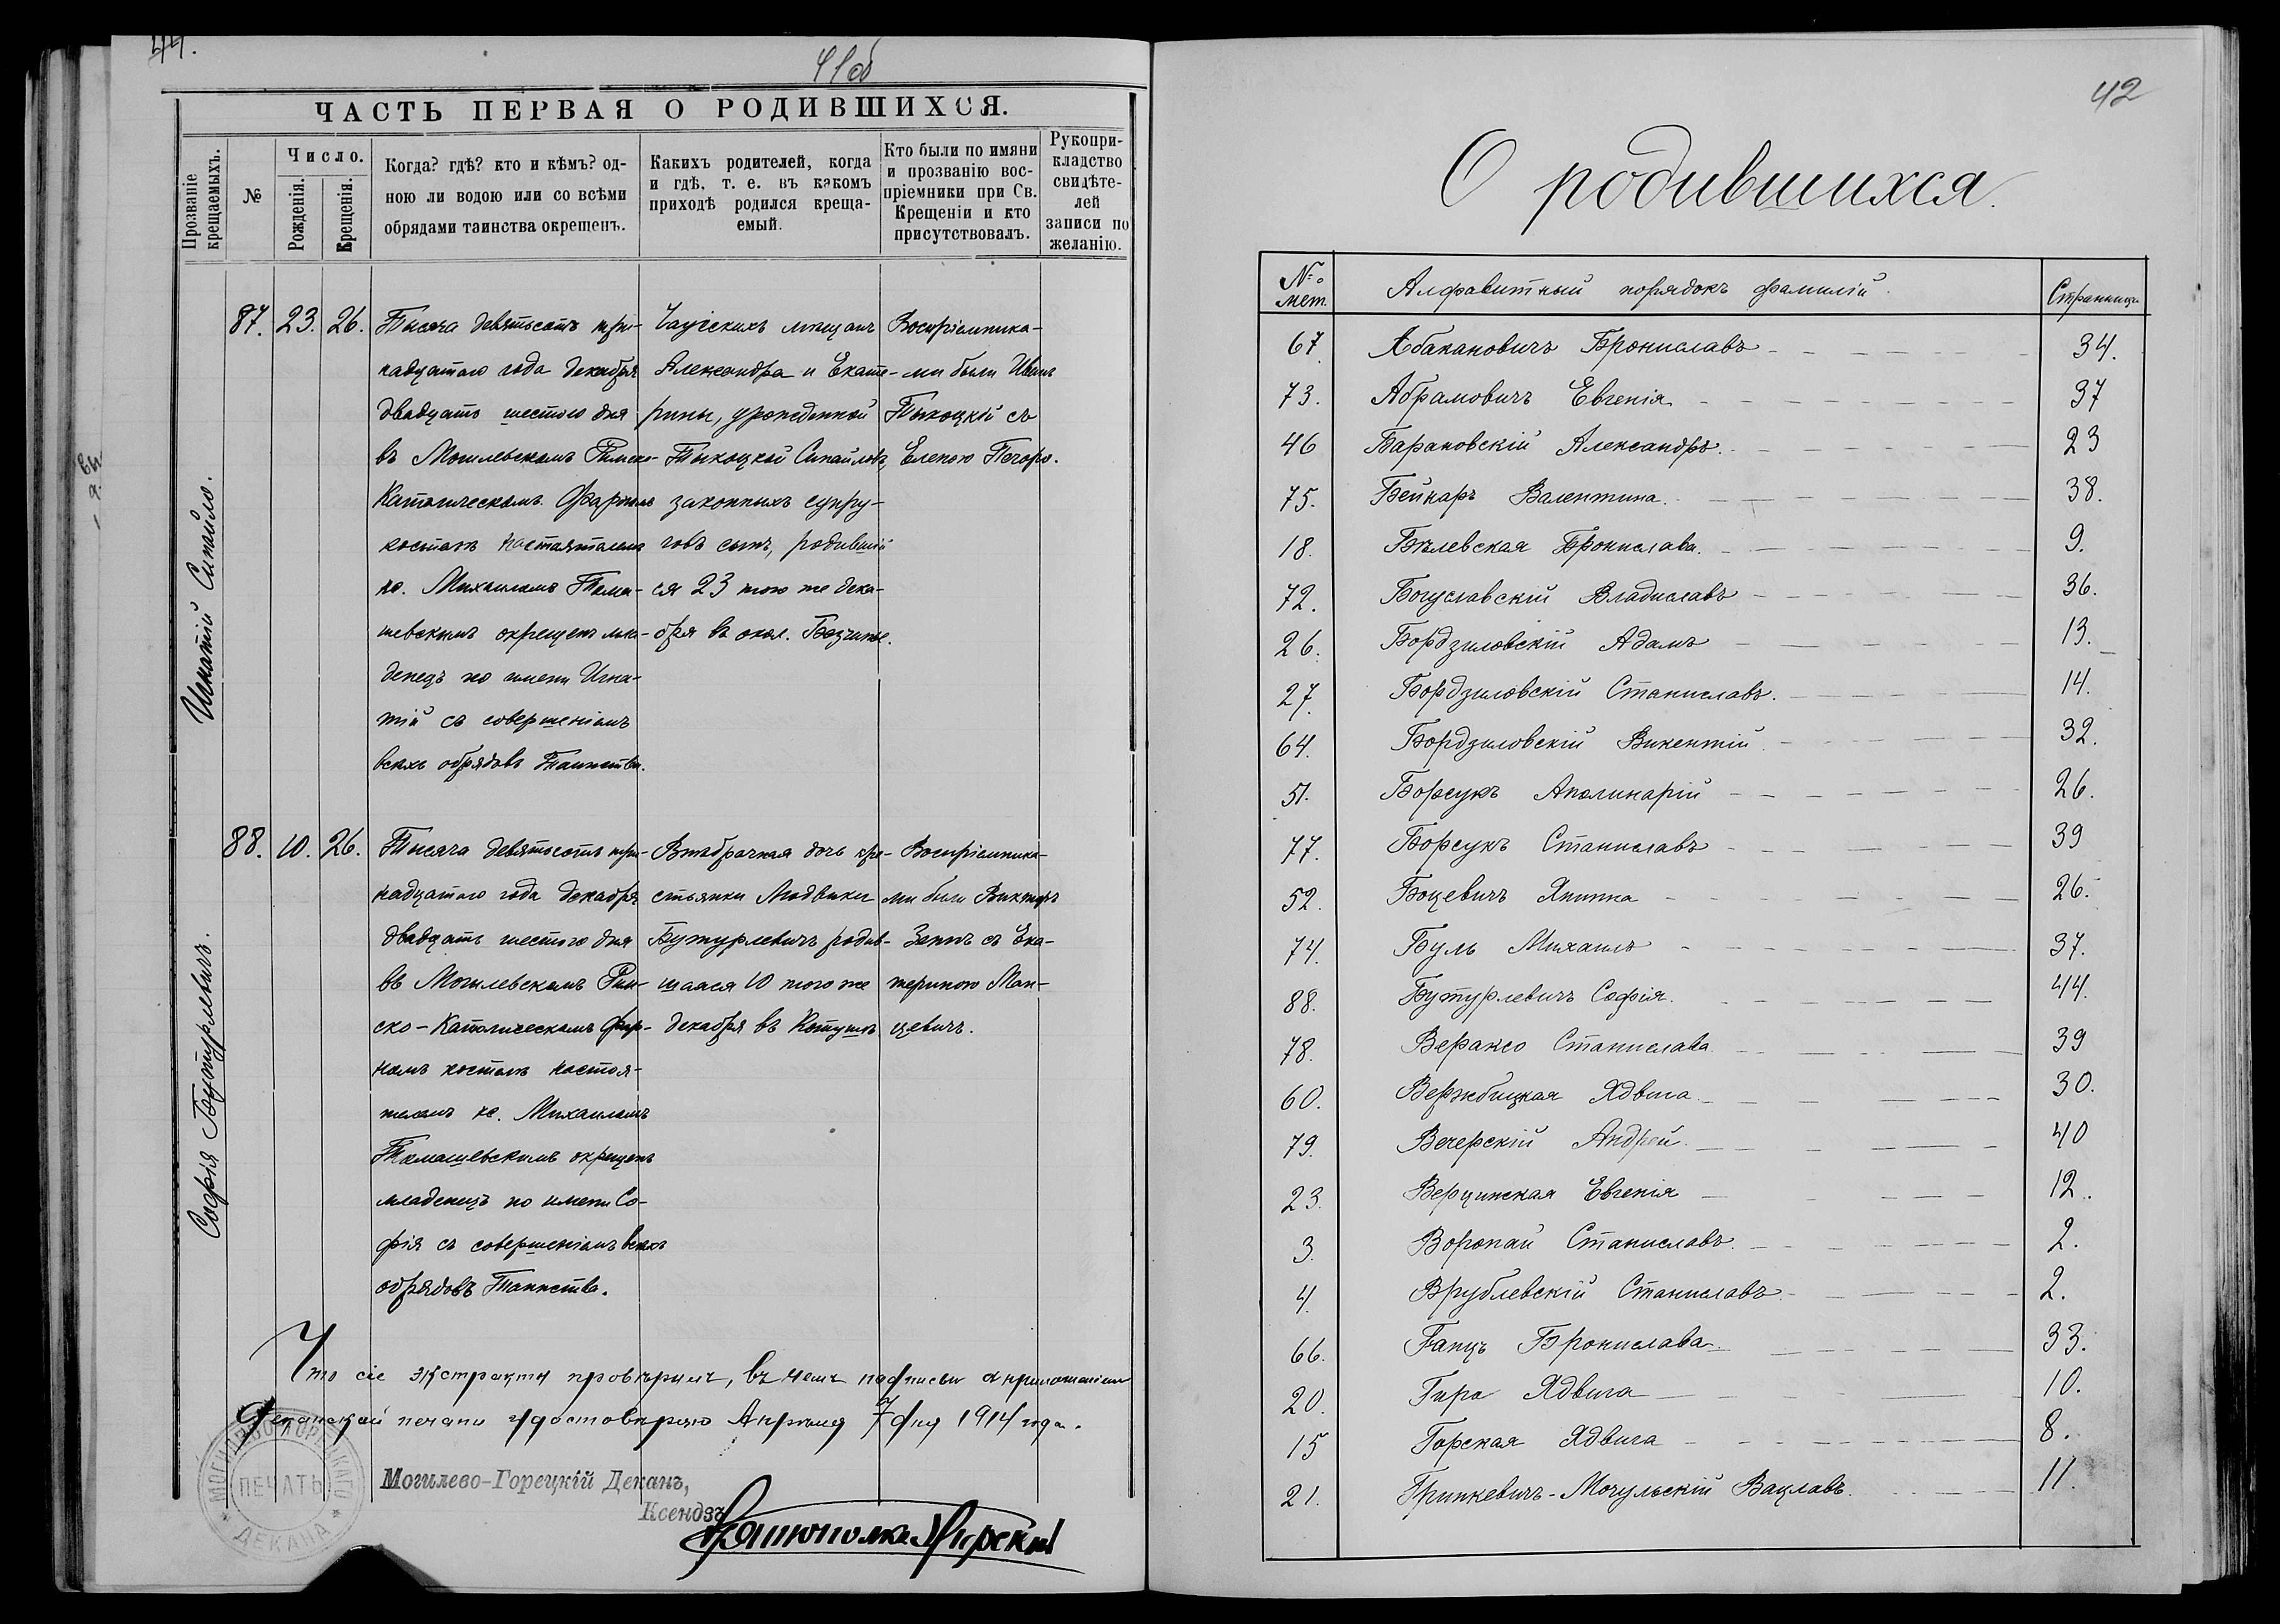 44.
41об
ЧАСТЬ ПЕРВАЯ О РОДИВШИХСЯ.
Прозваніе крещаемыхъ.
№
Число.
Рожденія.
Крещенія.
Когда? гдѣ? кто и кѣмъ? од-
ною ли водою или со всѣми
обрядами таинства окрещенъ.
Какихъ родителей, когда
и гдѣ, т. е. въ какомъ
приходѣ родился креща-
емый.
Кто были по имяни
и прозванію вос-
пріемники при Св.
Крещеніи и кто
присутствовалъ.
Рукопри-
кладство
свидѣте-
лей
записи по
желанію.
Игнатій Сипайло.
87. 23. 26.
Тысяча девятьсотъ три-
надцатаго года декабря
двадцать шестого дня
въ Могилевскомъ Римско-
Католическомъ Фарномъ
костелѣ настоятелемъ
кс. Михаиломъ Тома-
шевскимъ окрещенъ мла-
денецъ по имени Игна-
тій съ совершеніемъ
всѣхъ обрядовъ Таинства.
Чаусскихъ мѣщанъ
Александра и Екате-
рины, урожденной
Тыкоцкой Сипайловъ,
законныхъ супру-
говъ сынъ, родившій
ся 23 того же дека-
бря въ окол.
Воспріемника-
ми были Иванъ
Тыкоцкій съ
Еленою
Софія Бутурлевичъ.
88. 10. 26.
Тысяча девятьсотъ три-
надцатаго года декабря
двадцать шестого дня
въ Могилевскомъ Рим-
ско-Католическомъ Фар-
номъ костелѣ настоя-
телемъ кс. Михаиломъ
Томашевскимъ окрещенъ
младенецъ по имени Со-
фія съ совершеніемъ всѣхъ
обрядовъ Таинства.
Внѣбрачная дочь кре-
стьянки Людвики
Бутурлевичъ родив-
шаяся 10 того же
декабря въ
Воспріемника-
ми были Викторъ
съ Ека-
териною Ман-
цевичъ.
Что сіе экстракты провѣрилъ, въ чемъ подписью и приложеніемъ
Деканской печати удостовѣряю Апрѣля 7 дня 1914 года.
МОГИЛЕВО-ГОРЕЦКАГО
ПЕЧАТЬ
ДЕКАНА
Могилево-Горецкій Деканъ,
Ксендзъ
42
О родившихся.
№ мет. Алфавитный порядокъ фамилій. Страница
67 Абакановичъ Брониславъ 34.
73. Абрамовичъ Евгенія 37
46 Барановскій Александръ. 23
75. Бейнаръ Валентина. 38.
18. Бѣлевская Бронислава. 9.
72. Богуславскій Владиславъ 36.
26. Бордзиловскій Адамъ 13.
27. Бордзиловскій Станиславъ. 14.
64. Бордзиловскій Викентій 32.
51. Борсукъ Аполинарій 26.
77. Борсукъ Станиславъ 39
52. Боцевичъ Янина 26.
74. Буль Михаилъ 37.
88. Бутурлевичъ Софія. 44.
78. Вераксо Станислава 39
60. Вержбицкая Ядвига. 30.
79. Вечерскій Андрей. 40
23. Верцинская Евгенія 12.
3. Воропай Станиславъ. 2.
4. Врублевскій Станиславъ 2.
66. Ганцъ Бронислава. 33.
20. Гиро Ядвига 10.
15 Горская Ядвига 8.
21. Гринкевичъ-Мочульскій Вацлавъ. 11.